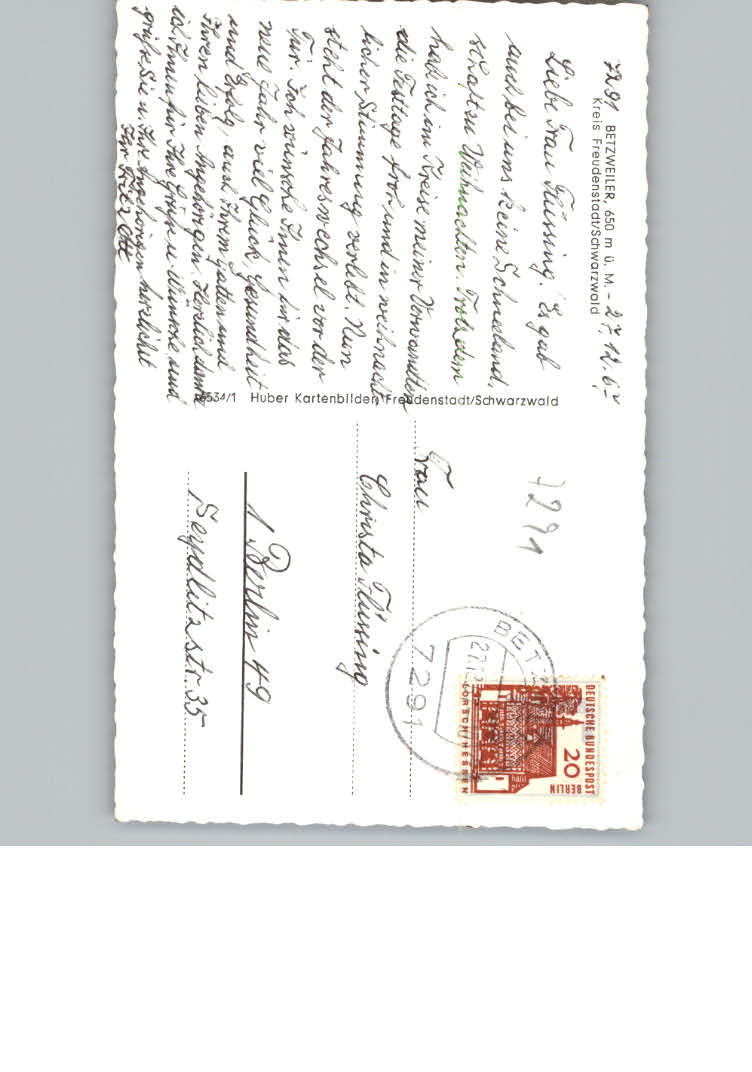 7291 BETZWEILER, 650 m ü. M. - 27.12.67
Kreis Freudenstadt/Schwarzwald
Liebe Frau Flüssing. Es gab
auch bei uns keine Schneeland,
schaften Weihnachten. Trotzdem
hab ich im Kreise meiner Verwandten
die Festtage froh und in weihnacht
licher Stimmung verlebt. Nun
steht der Jahreswechsel vor der
Tür. Ich wünsche Ihnen für das
neue Jahr viel Glück, Gesundheit
und Erfolg, auch Ihrem Gatten und
Ihren lieben Angehörigen. Herzlich danke
ich Ihnen für Ihre Grüße u. Wünsche und
grüße Sie u. Ihre Angehörigen herzlichst
Ihr
6534/1 Huber Kartenbilder, Freudenstadt/Schwarzwald
7291
Frau
Christa Flüssing
1 Berlin 49
Seydlitzstr. 35
BETZWEILER
7291
DEUTSCHE BUNDESPOST
BERLIN
20
LORSCH/HESSEN